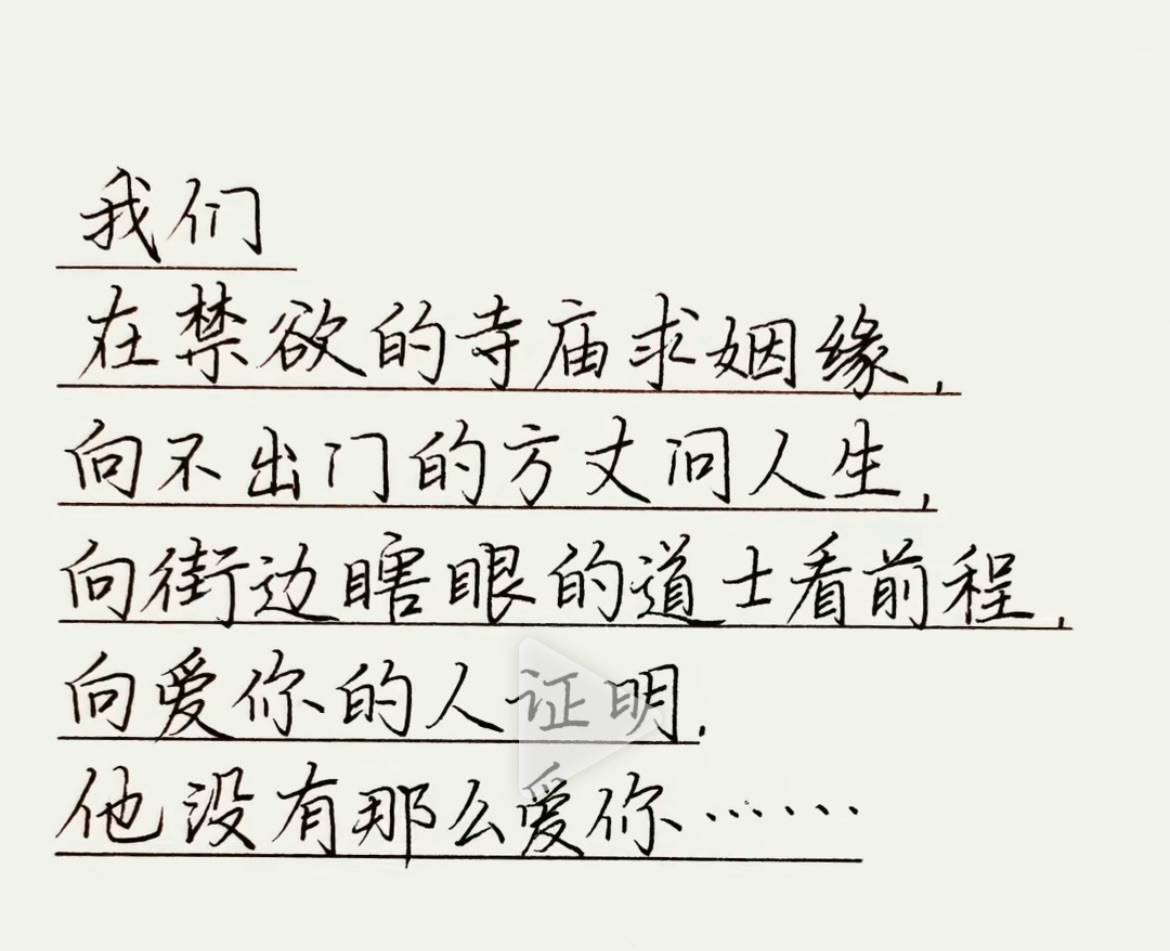 我们
在禁欲的寺庙求姻缘，
向不出门的方丈问人生，
向街边瞎眼的道士看前程，
向爱你的人证明，
他没有那么爱你……